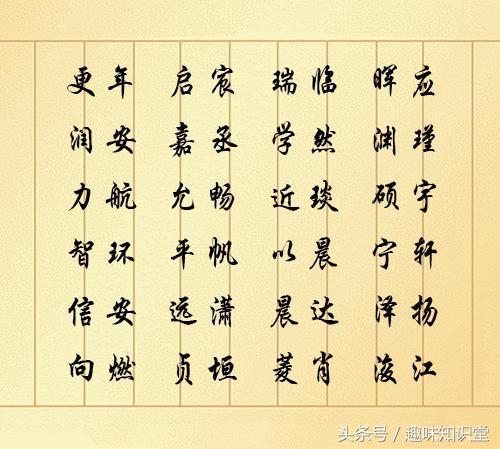 更年 启宸 瑞临 晖应
润安 嘉丞 学然 渊瑾
力航 允畅 近琰 硕宇
智环 平帆 以晨 宁轩
信安 远潇 晨达 泽扬
向燃 贞垣 菱肖 浚江
头条号 / 趣味知识堂